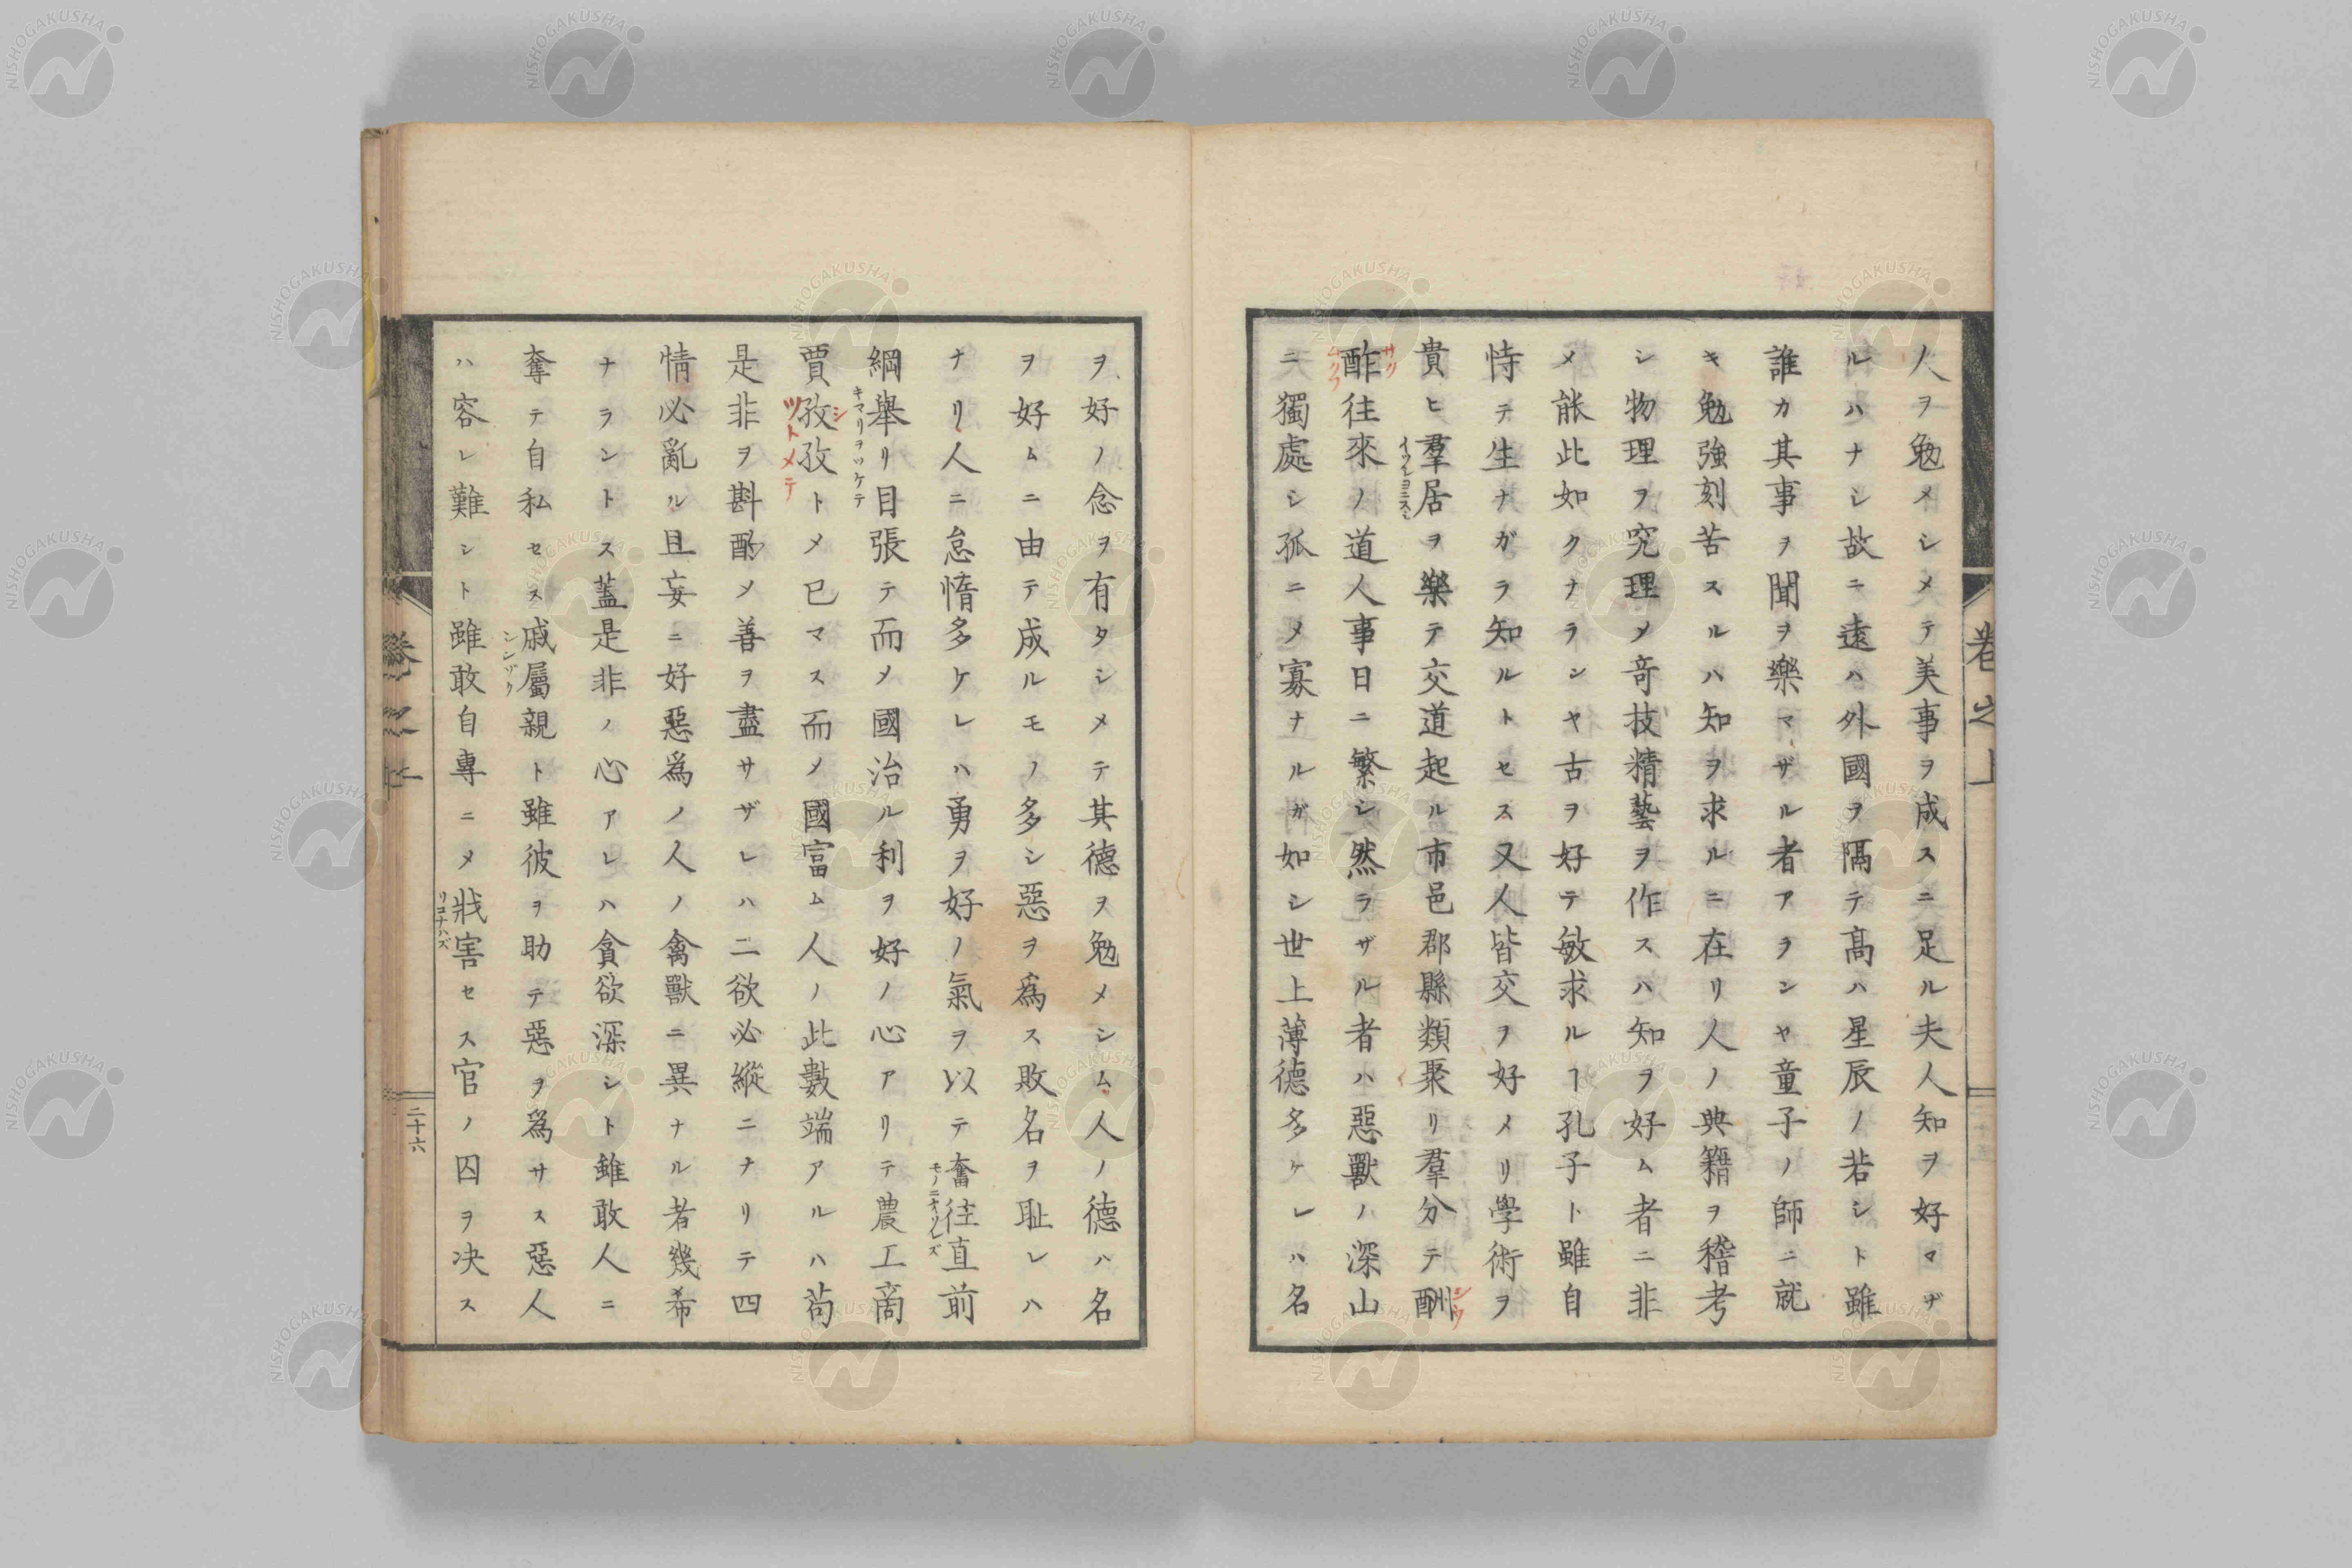 人ヲ勉メシメテ美事ヲ成スニ足ル夫人知ヲ好マザ
ルハナシ故ニ遠ハ外國ヲ隔テ髙ハ星辰ノ若シト雖
誰カ其事ヲ聞ヲ樂マザル者アランヤ童子ノ師ニ就
キ勉強刻苦スルハ知ヲ求ルニ在リ人ノ典籍ヲ稽考
シ物理ヲ究理メ竒技精藝ヲ作スハ知ヲ好ム者ニ非
メ能此如クナランヤ古ヲ好テ敏求ルヿ孔子ト雖自
恃テ生ナガラ知ルトセス又人皆交ヲ好メリ學術ヲ
貴ヒ羣居ヲ樂テ交道起ル市邑郡縣類聚リ羣分テ酬
酢往來ノ道人事日ニ繁シ然ラザル者ハ惡獸ノ深山
ニ獨處シ孤ニメ寡ナルガ如シ世上薄德多ケレハ名
ヲ好ノ念ヲ有タシメテ其德ヲ勉メシム人ノ德ハ名
ヲ好ムニ由テ成ルモノ多シ惡ヲ爲ス敗名ヲ耻レハ
ナリ人ニ怠惰多ケレハ勇ヲ好ノ氣ヲ以テ奮徃直前
綱舉リ目張テ而メ國治ル利ヲ好ノ心アリテ農工商
賈孜孜トメ已マス而メ國富ム人ノ此數端アルハ茍
是非ヲ斟酌メ善ヲ盡サザレハ二欲必縱ニナリテ四
情必亂ル且妄ニ好惡爲ノ人ノ禽獸ニ異ナル者幾希
ナラントス蓋是非ノ心アレハ貪欲深シト雖敢人ニ
奪テ自私セス戚屬親ト雖彼ヲ助テ惡ヲ爲サス惡人
ハ容レ難シト雖敢自專ニメ戕害セス官ノ囚ヲ决ス
卷之上
二十六